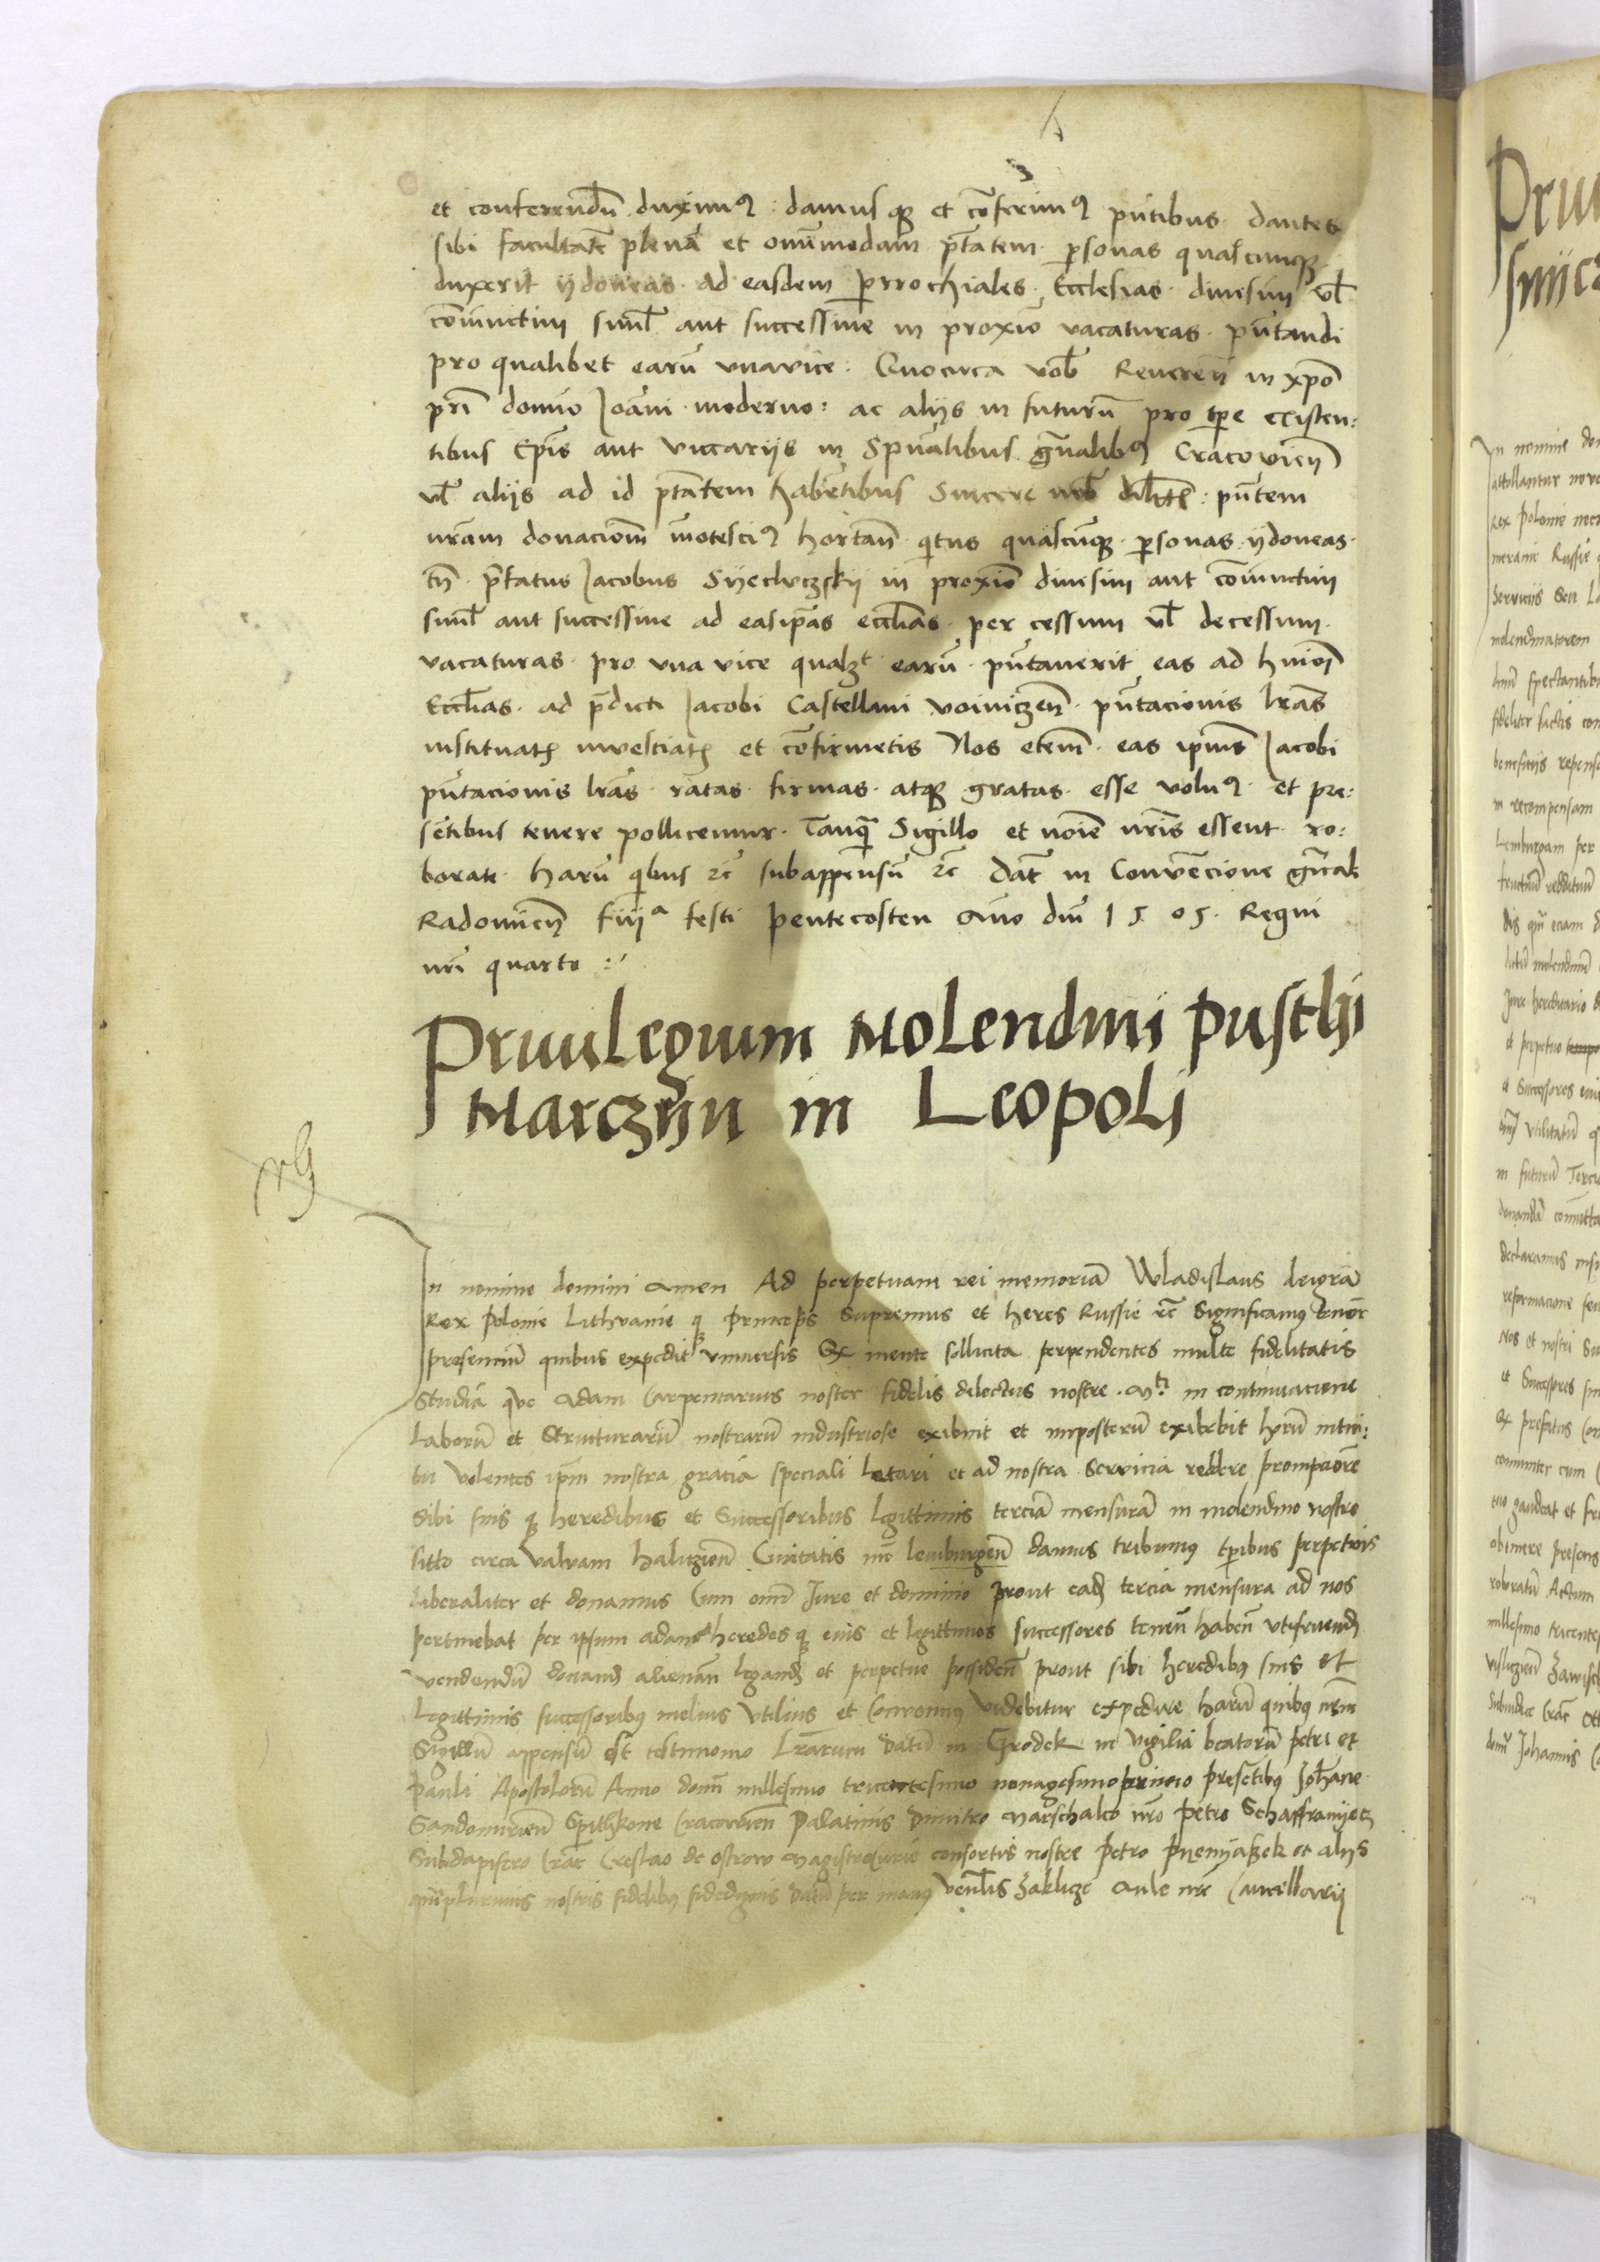 et conferendu᷃ duximꝰ : damusq₃ et co᷃ferimꝰ pu᷃tibus dantes
sibi facultate᷃ plena᷃ et om᷃imodam pt᷃atem personas quascunq₃
duxerit ijdoneas ad easdem parrochiales Ecclesias diuisim vl᷃
co᷃iunctim simul᷃ aut successiue in proxi᷃o vacaturas pu᷃tandi
pro qualibet earu᷃ vna vice : Quocirca vob᷃ Reueren᷃ in xp᷃o
pr᷃i domi᷃o Joa᷃ni moderno : ac alijs in futuru᷃ pro tp᷃e existen:
tibus Ep᷃is aut viccarijs in Spu᷃alibus gn᷃alibꝰ Cracouien᷃
vl᷃ alijs ad id pt᷃atem habe᷃tibus Sincere nob᷃ dil᷃cte᷃ : pu᷃tem
nr᷃am donacione᷃ in᷃otescimꝰ hortan᷃ q᷃tus quascu᷃q₃ personas ijdoneas
tn᷃ pr᷃fatus Jacobus Syechczskij in proxi᷃o diuisim aut co᷃iunctim
simul᷃ aut successiue ad easip᷃as eccl᷃ias per cessum vl᷃ decessum
vacaturas pro vna vice qualꝫt earu᷃ pu᷃tauerit eas ad hm᷃oi
Eccl᷃ias ad pr᷃dicti Jacobi Castellani voiniczen᷃ pu᷃tacionis lr᷃as
instituatꝭ inuestiatꝭ et co᷃firmetis Nos etem᷃ eas ip᷃ius Jacobi
pu᷃tacionis lr᷃as ratas firmas atq₃ gratas esse volumꝰ et pre:
se᷃tibus tenere pollicemur Tanq᷃ Sigillo et no᷃ie nr᷃is essent ro:
borate haru᷃ q᷃bus ꝛc᷃ subappensu᷃ ꝛc᷃ Dat᷃ in Conuencione gn᷃ali
Radomien᷃ fiijª festi Pentecosten An᷃o dn᷃i 1505 Regni
nr᷃i quarto :
Priuilegium Molendini Pusthi
Marczijn in Leopoli
In nomine domini amen Ad perpetuam rei memoria᷃ Wladislaus dei gra᷃
Rex Polonie Lithvanie q₃ Princeps Supremus et heres Russie ꝛc᷃ Significamus tenore
presenciu᷃ quibus expedit vniuersis Q᷃ mente sollicita perpendentes multe fidelitatis
Studia᷃ que Adam Carpentarius noster fidelis dilectus nostre Mti in continuacione
Laboru᷃ et Structuraru᷃ nostraru᷃ industriose exibuit et imposteru᷃ exibebit horu᷃ intui:
tu volentes ip᷃m nostra gracia speciali Letari et ad nostra Servicia reddere promptiore᷃
Sibi suisq₃ heredibus et Successoribus Legittimis tercia᷃ mensura᷃ in molendino nostro
sitto circa valvam haliczien᷃ Ciuitatis nr᷃e lemburgen᷃ damus tribuimus te᷃poribus perpetuis
liberaliter et donamus Cum omni᷃ Jure et dominio prout eadꝭ tercia mensura ad nos
pertinebat per ipsum adam heredesq₃ eius et legittimos successores tenen᷃ haben᷃ vtifruendꝭ
vendendu᷃ donandꝭ alienan᷃ legandꝭ et perpetue possiden᷃ prout sibi heredibꝰ suis et
Legittimis successoribꝰ melius vtilius et Conuenciꝰ videbitur expedire Haru᷃ quibꝰ nr᷃m
Sigillu᷃ appensu᷃ est testimonio Lr᷃arum Datu᷃ in Grodek in vigilia beatoru᷃ petri et
Pauli Apostoloru᷃ Anno domi᷃ millesimo tricentesimo nonagesimoprimo Prese᷃tibꝰ Joha᷃ne
Sandomirien᷃ Spithkone Cracovien᷃ Palatinis Dmitro Marschalco nr᷃o Petro Schaffranijecz
Subdapifero Crac᷃ Creslao de ostrow Magistro curie consortis nostre Petro Pnenijaszek et alijs
q᷃mplurimis nostris fidelibꝰ fidedignis Datu᷃ per manꝰ Vene᷃lis Zaklicze Aule nr᷃e Cancellarij